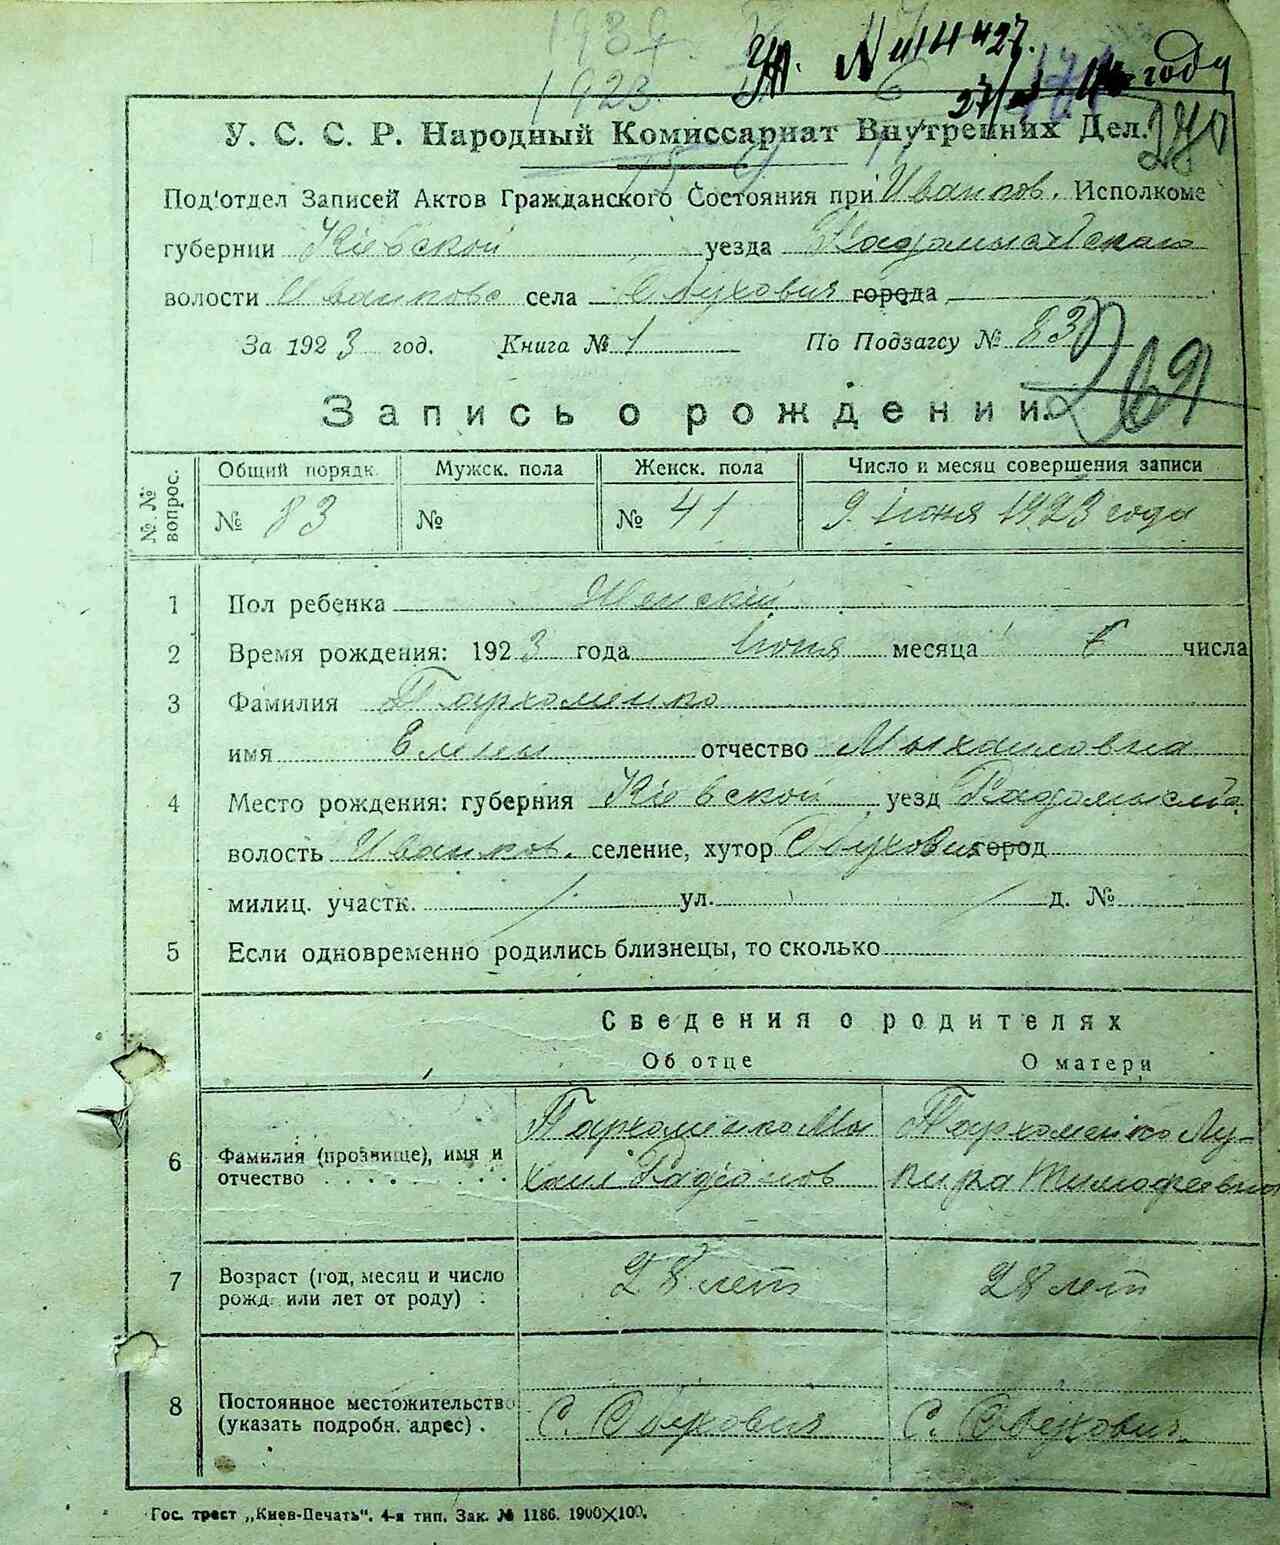 1939
1923
№ 114427.
году
У. С. С. Р. Народный Комиссариат Внутренних Дел.
280
Под'отдел Записей Актов Гражданского Состояния при Иванков. Исполкоме
губернии Кіевской уезда Радомысльскаго
волости Иванково села Обуховичи города
За 1923 год. Книга № 1 По Подзагсу № 83
269
Запись о рождении.
№ № вопрос.
Общий порядк. Мужск. пола Женск. пола Число и месяц совершения записи
№ 83 № № 41 9 Июня 1923 года
1 Пол ребенка Женскій
2 Время рождения: 1923 года Июня месяца числа
3 Фамилия Пархоменко
имя Елены отчество Мыхаиловна
4 Место рождения: губерния Кіевской уезд Радомысль
волость Иванков. селение, хутор Обуховичи город
милиц. участк. ул. д. №
5 Если одновременно родились близнецы, то сколько
Сведения о родителях
Об отце О матери
6 Фамилия (прозвище), имя и отчество Пархоменко Мыхаил Пархоменко Лукирка Тимофеевна
7 Возраст (год, месяц и число рожд. или лет от роду) : 28 лет 28 лет
8 Постоянное местожительство (указать подробн. адрес) . С. Обуховичи С. Обуховичи
Гос. трест „Киев-Печать". 4-я тип. Зак. № 1186. 1900×100.